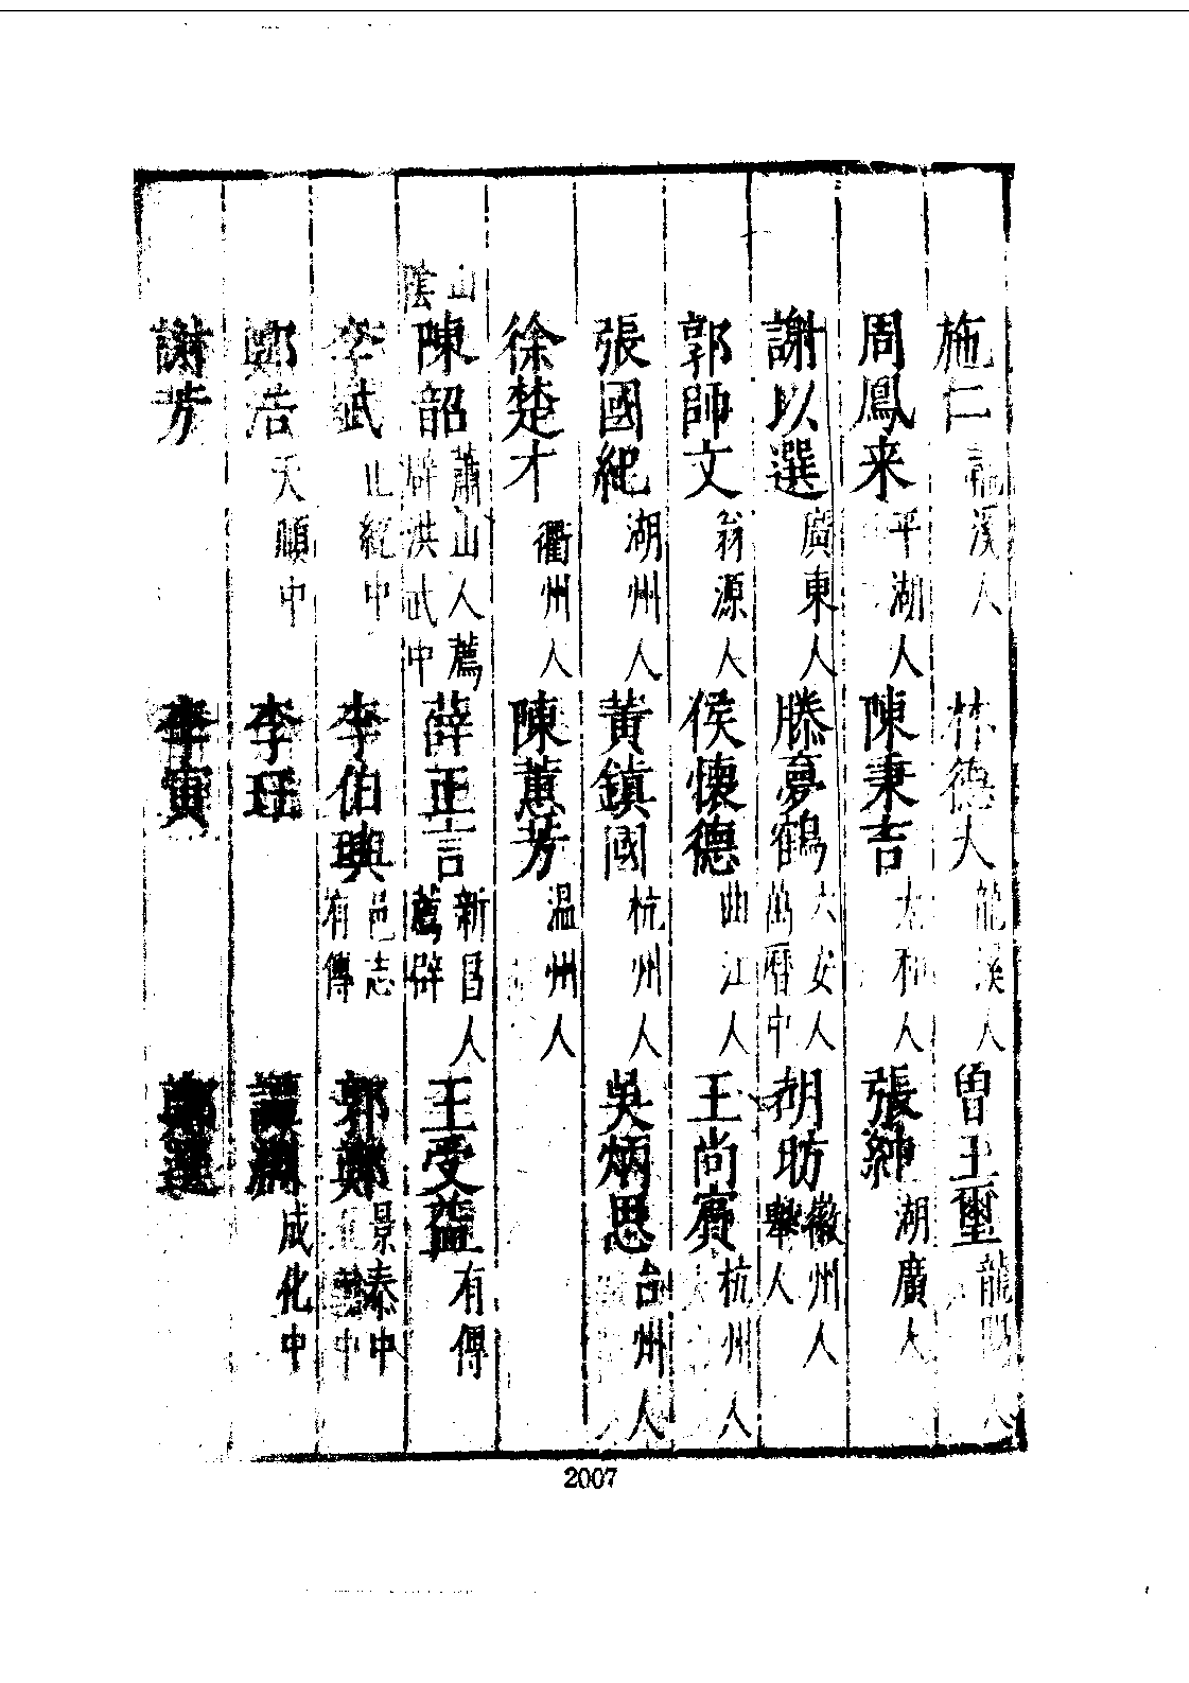 施仁龍溪人 林德大龍溪人 曾玉璽龍陽人
周鳳来平湖人 陳秉吉太和人 張紳湖廣人
謝以選廣東人 滕夢鶴六安人萬曆中 胡昉徽州人舉人
郭師文翁源人 侯懷德曲江人 王尚賓杭州人
張國紀湖州人 黃鎮國杭州人 吳炳思台州人
徐楚才衢州人 陳蕙芳温州人
山陰
陳韶蕭山人薦辟洪武中 薛正言新昌人薦辟 王受益有傳
李武正統中 李伯璵邑志有傳 郭鄭景泰中
浩天順中 李珏 譚成化中
謝芳 李寅
2007